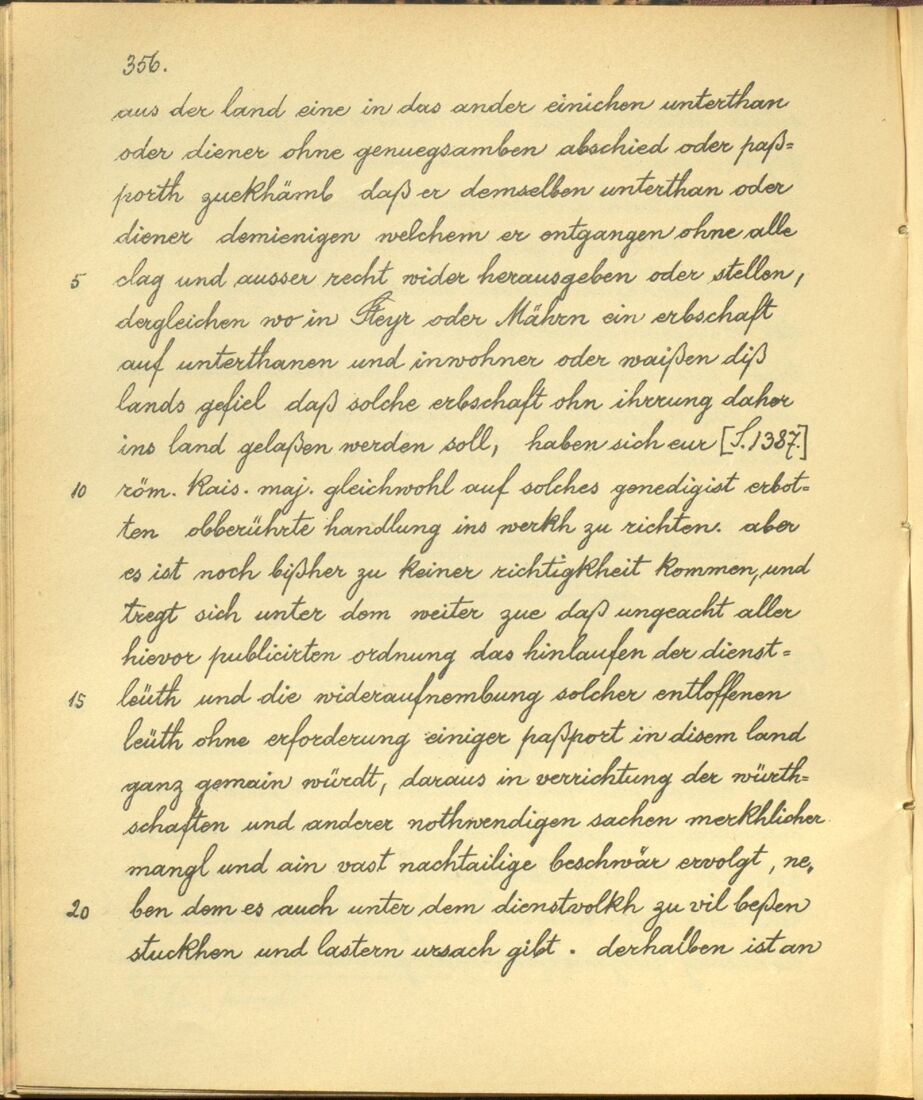 356.
aus der land eine in das ander einichen unterthan
oder diener ohne genuegsamben abschied oder paß=
porth zuekhämb daß er demselben unterthan oder
diener demienigen welchem er entgangen ohne alle
5 clag und ausser recht wider herausgeben oder stellen,
dergleichen wo in Steyr oder Mährn ein erbschaft
auf unterthanen und inwohner oder waißen diß
lands gefiel daß solche erbschaft ohn ihrrung daher
ins land gelaßen werden soll, haben sich eur [S. 1387.]
10 röm. Kais. maj. gleichwohl auf solches genedigist erbot=
ten obberührte handlung ins werkh zu richten. aber
es ist noch bißher zu keiner richtigkheit kommen, und
tregt sich unter dem weiter zue daß ungeacht aller
hievor publicirten ordnung das hinlaufen der dienst=
15 leüth und die wideraufnembung solcher entloffenen
leüth ohne erforderung einiger paßport in disem land
ganz gemain würdt, daraus in verrichtung der würth=
schaften und anderer nothwendigen sachen merkhlicher
mangl und ain vast nachtailige beschwär ervolgt, ne,,
20 ben dem es auch unter dem dienstvolkh zu vil beßen
stuckhen und lastern ursach gibt. derhalben ist an